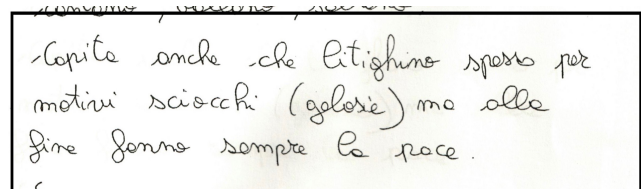 Capita anche che litighino spesso per
motivi sciocchi (gelosie) ma alla
fine fanno sempre la pace.